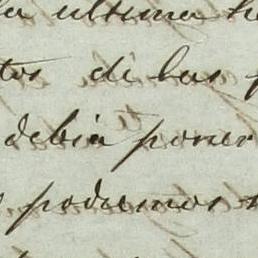 la ultima
tos de las
debia poner
podemos